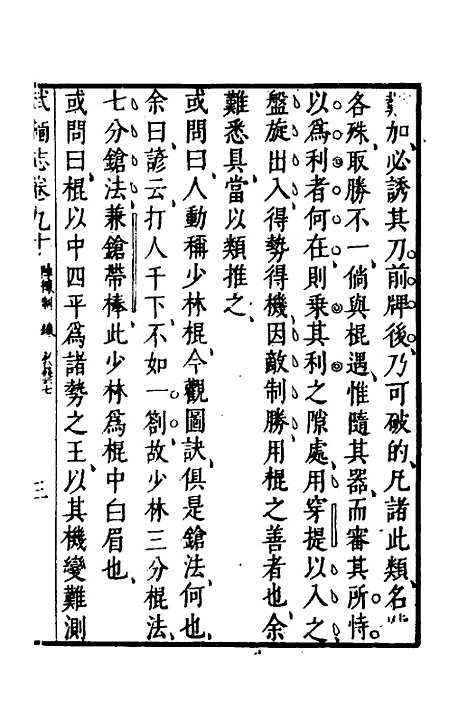 加必誘其刀前牌後乃可破的凡諸此類名
各殊取勝不一倘與棍遇惟隨其器而審其所恃
以爲利者何在則乘其利之隙處用穿提以入之
盤旋出入得勢得機因敵制勝用棍之善者也余
難悉具當以類推之
或問曰人動稱少林棍今觀圖訣俱是鎗法何也
余曰諺云打人千下不如一劄故少林三分棍法
七分鎗法兼鎗帶棒此少林爲棍中白眉也
或問曰棍以中四平爲諸勢之王以其機變難測
武備志卷九十 陣練制 練 三